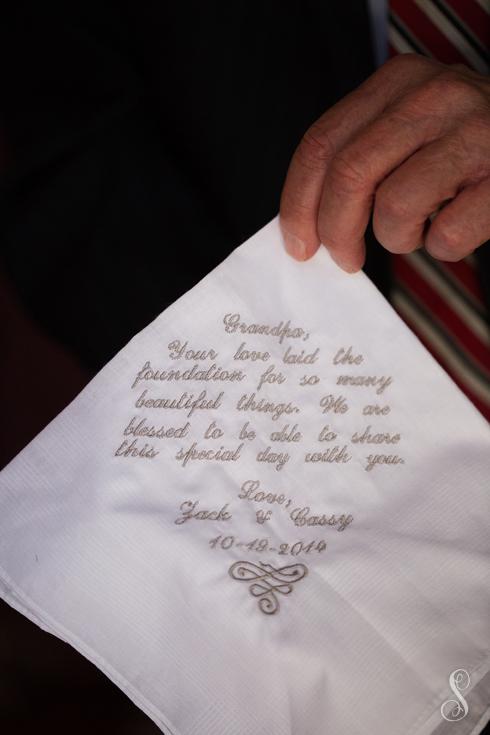 Grandpa,
Your love laid the
foundation for so many
beautiful things. We are
blessed to be able to share
this special day with you.
Love,
Jack & Cassy
10-19-2014
S